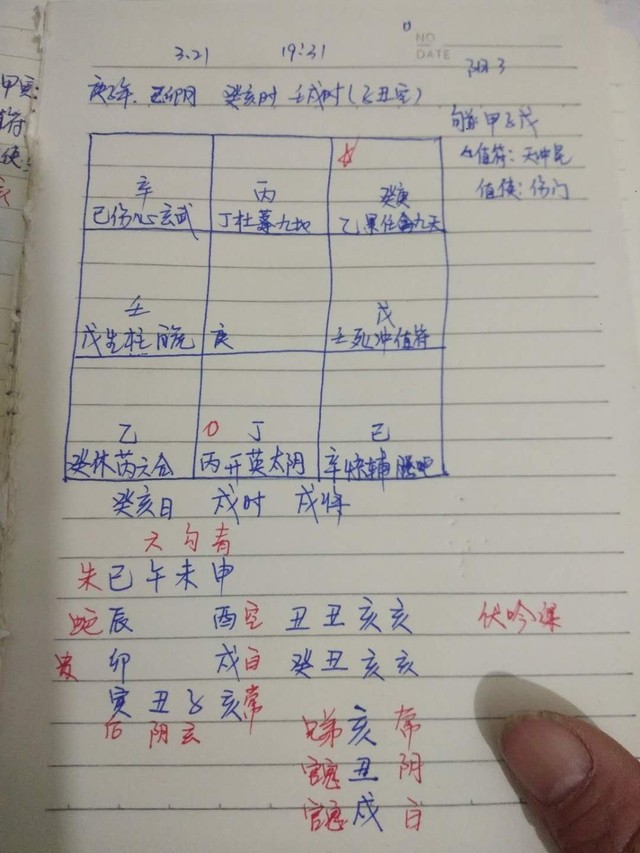 3.21 19:31
NO
DATE
庚子年. 己卯月 癸亥时 壬戌时(子丑空)
旬首甲子戊
值符:天冲星
值使:伤门
辛 丙 癸庚
己伤心玄武 丁杜蓬九地 乙景任禽九天
壬 戊
戊生柱 庚 壬死冲值符
乙 O 丁 己
癸休芮六合 丙开英太阴 辛惊辅螣蛇
癸亥日 戌时 戌将
六 勾 青
朱 巳 午 未 申
蛇 辰 酉 空 丑 丑 亥 亥 伏吟课
贵 卯 戌 白 癸 丑 亥 亥
寅 丑 子 亥 常
后 阴 玄
兄弟 亥 常
官鬼 丑 阴
官鬼 戌 白